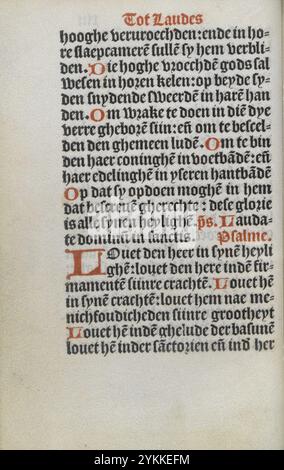 Tot Laudes
hooghe veruroechden: ende in ho-
re slaepcamerē sullē sy hem verbli-
den. Die hoghe vroechdē gods sal
wesen in horen kelen: op beyde sy-
den snydende sweerdē in harē han
den. Om wrake te doen in diē dye
verre gheborē siin: eñ om te bescel-
den den ghemeen ludē. Om te bin
den haer coninghē in voetbādē: eñ
haer edelinghē in yseren hantbādē
Op dat sy op doen moghē in hem
dat bescreuē gherechte: dese glorie
is alle synen heylighē. ps. Lauda-
te dominū in sanctis. Psalme.
LOuet den heer in synē heyli
ghē: louet den here indē fir-
mamentē siinre crachtē. Louet hē
in synē crachtē: louet hem nae me-
nichfoudicheden siinre grootheyt
Louet hē indē ghelude der basunē
louet hē inder sāctorien eñ ind her
alamy
Image ID: 2YKKEFM
www.alamy.com